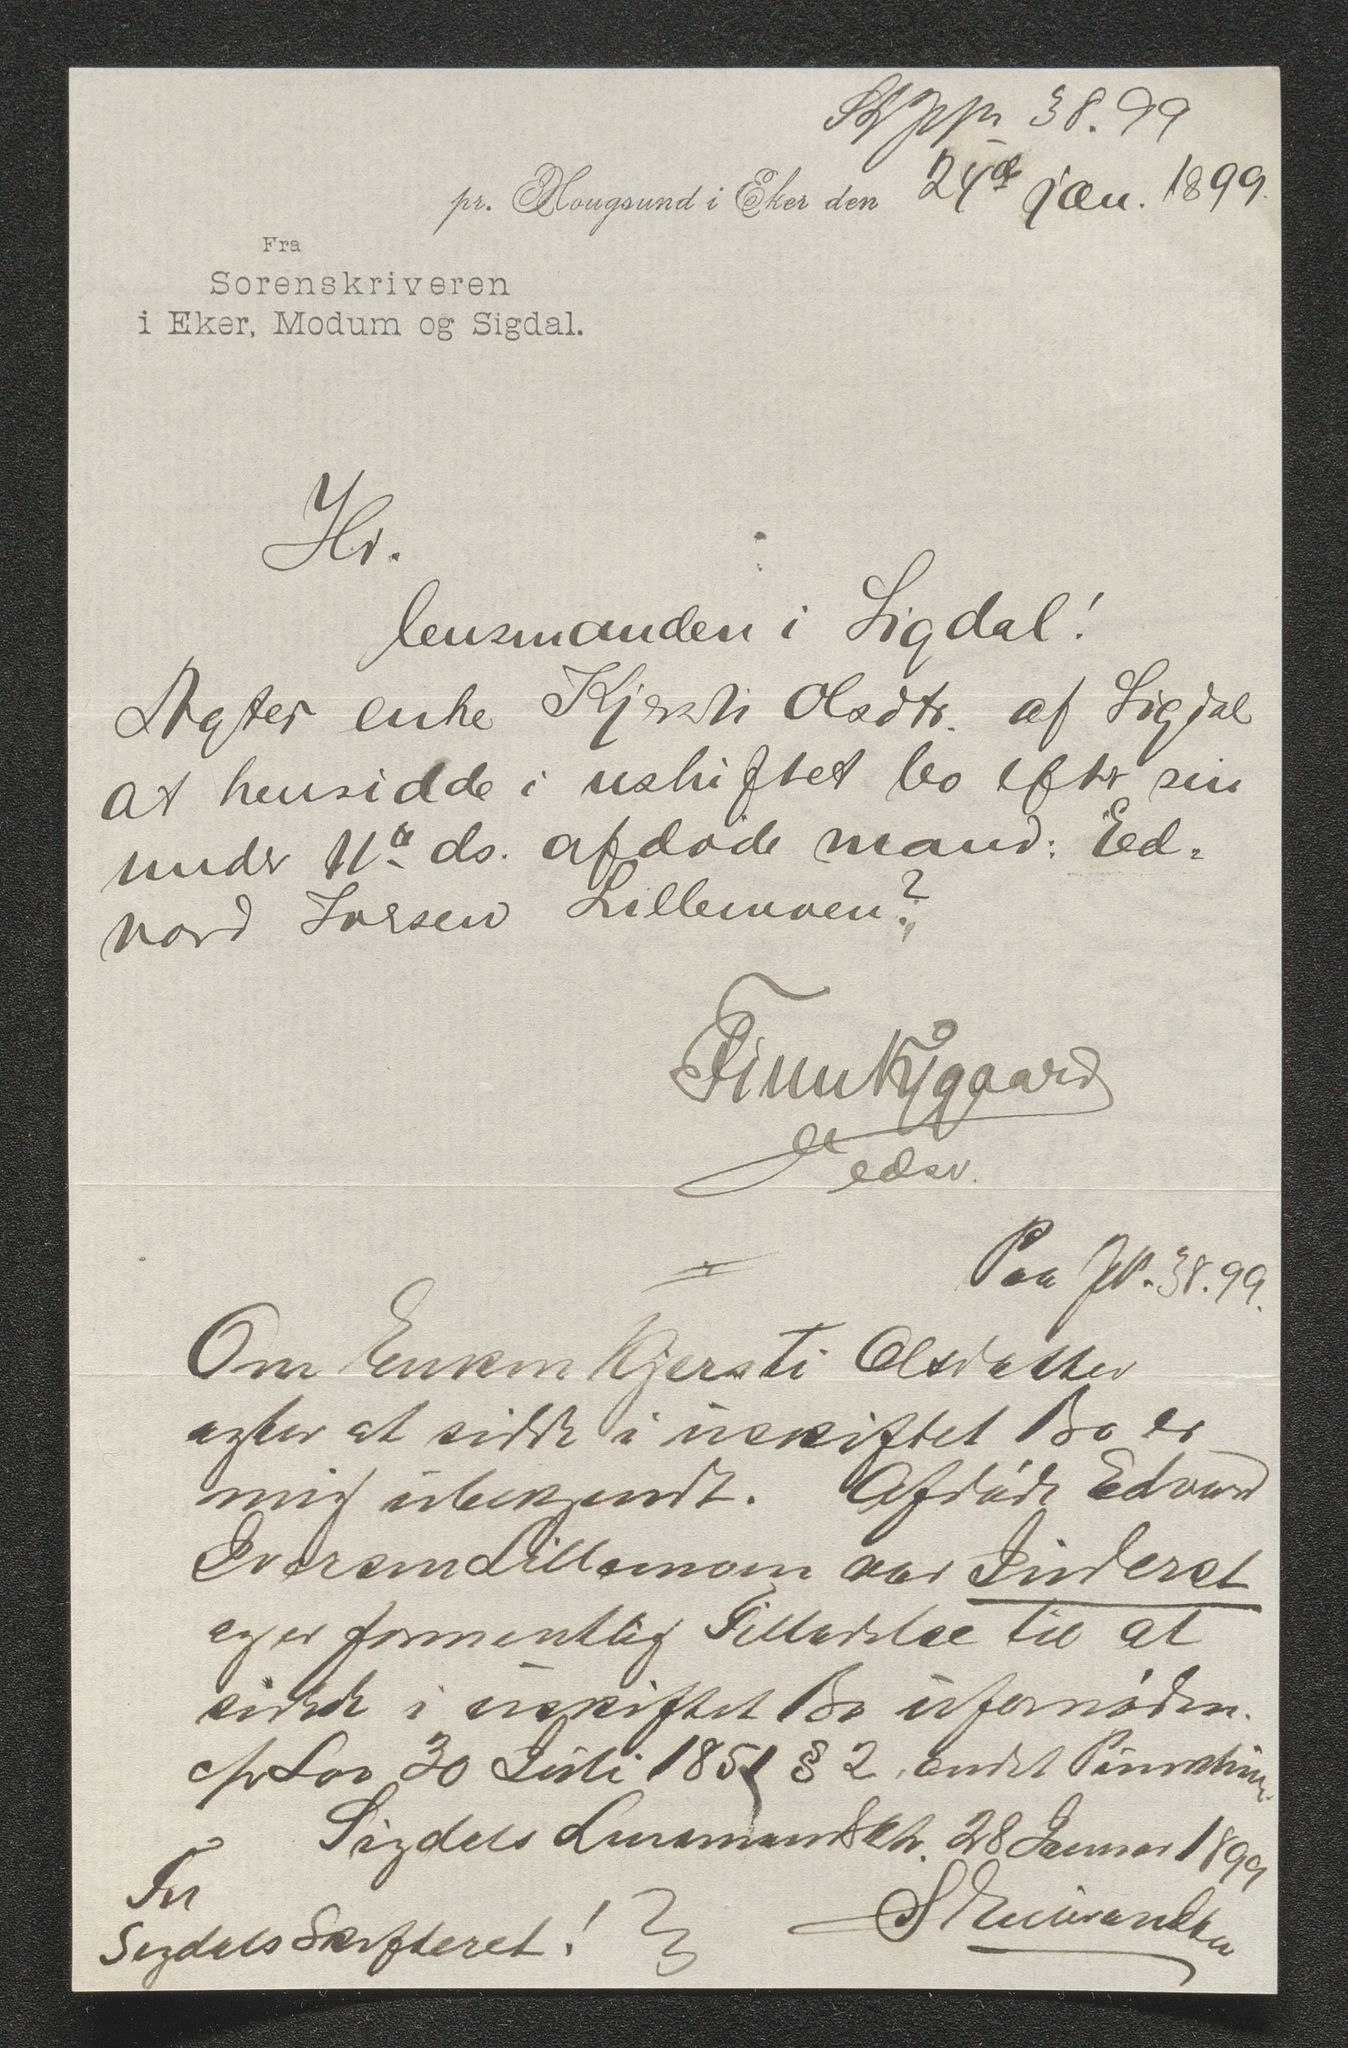 Skfpp 38.99
pr. Hougsund i Eker den 24de jan. 1899.
Fra
Sorenskriveren
i Eker, Modum og Sigdal.
Hr.
lensmanden i Sigdal!
Agter enke Kjersti Olsdtr. af Sigdal
at hensidde i uskiftet bo efter sin
under 11te ds. afdøde mand: Ed-
vard Iversen Lillemoen?
Finn Nygaard
edsv.
Paa JN. 38.99.
Om Enken Kjersti Olsdatter
agter at sidde i uskiftet Bo er
mig ubekjendt. Afdøde Edvard
Iversen Lillemoen var Inderst
og er formentlig Tilladelse til at
sidde i uskiftet Bo ufornøden.
cfr Lov 30 Juli 1851 § 2, andet Punktum.
Sigdals Lensmandsktr. 28 Januar 1899
Til
Sigdals Skifteret!